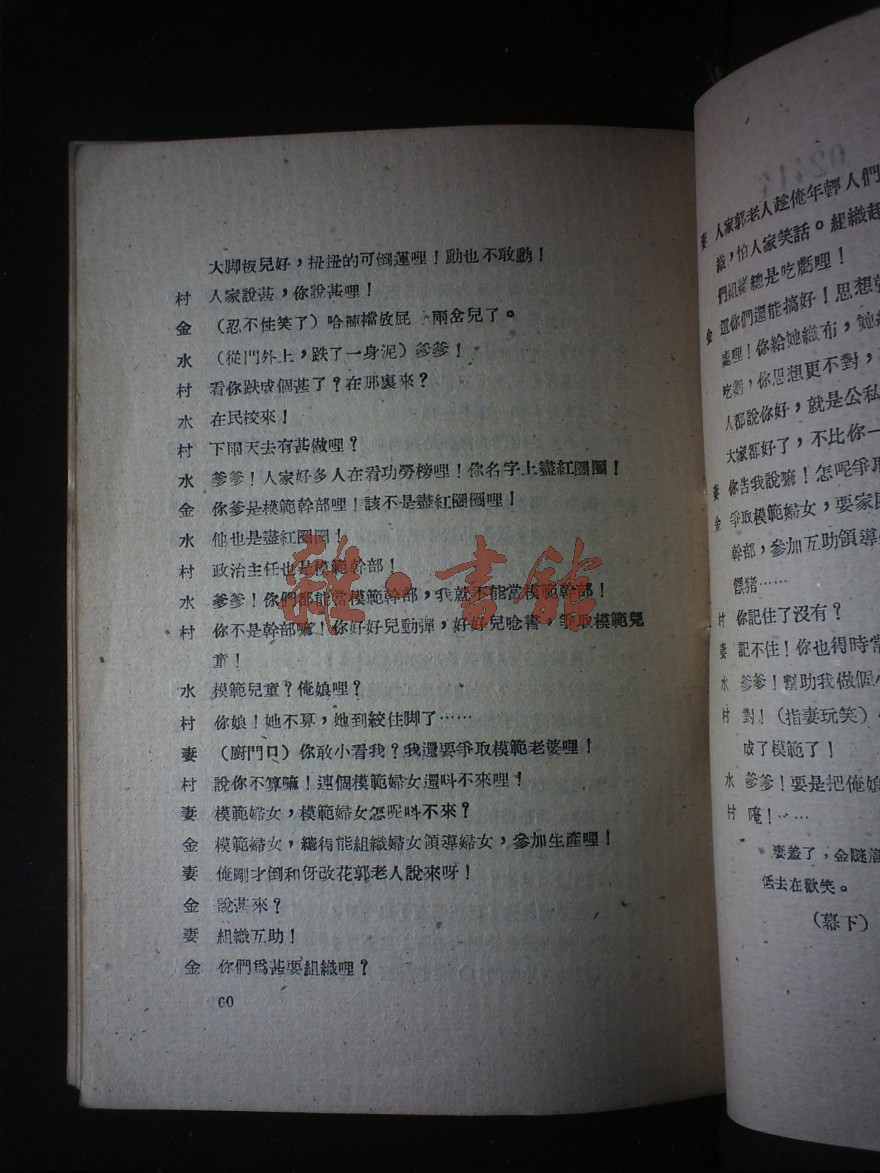 大脚板兒好，扭扭的可倒蓮哩！動也不敢動！
村 人家說甚，你說甚哩！
金 （忍不住笑了）哈褲襠放屁 兩岔兒了。
水 （從門外上，跌了一身泥）爹爹！
村 看你跌成個甚了？在那裏來？
水 在民校來！
村 下雨天去有甚做哩？
水 爹爹！人家好多人在看功勞榜哩！你名字上盡紅圈圈！
金 你爹是模範幹部哩！該不是盡紅圈圈哩！
水 他也是盡紅圈圈！
村 政治主任也是模範幹部！
水 爹爹！你們都能當模範幹部，我就不能當模範幹部！
村 你不是幹部嘛！你好好兒動彈，好好兒唸書，爭取模範兒
童！
水 模範兒童？俺娘哩？
村 你娘！她不算，她到絞住脚了……
妻 （廚門口）你敢小看我？我還要爭取模範老婆哩！
村 說你不算嘛！連個模範婦女還呌不來哩！
妻 模範婦女，模範婦女怎呢呌不來？
金 模範婦女，總得能組織婦女領導婦女，參加生產哩！
妻 俺剛才倒和伢改花郭老人說來呀！
金 說甚來？
妻 組織互助！
金 你們爲甚要組織哩？
60
妻 人家郭老人趁俺年輕人們
織，怕人家笑話。組織起
們組緒總是吃虧哩！
金 這你們還能搞好！思想
處哩！你給她織布，她
吃虧，你思想更不對，
人都說你好，就是公私
大家都好了，不比你一
妻 你告我說嘛！怎呢爭取
金 爭取模範婦女，要家
幹部，參加互助領導
餵猪……
村 你記住了沒有？
妻 記不住！你也得時常
水 爹爹！幫助我做個小
村 對！（指妻玩笑）
成了模範了！
水 爹爹！要是把俺娘
村 唵！……
妻羞了，金
低去在歡笑。
（幕下）
雜·書館